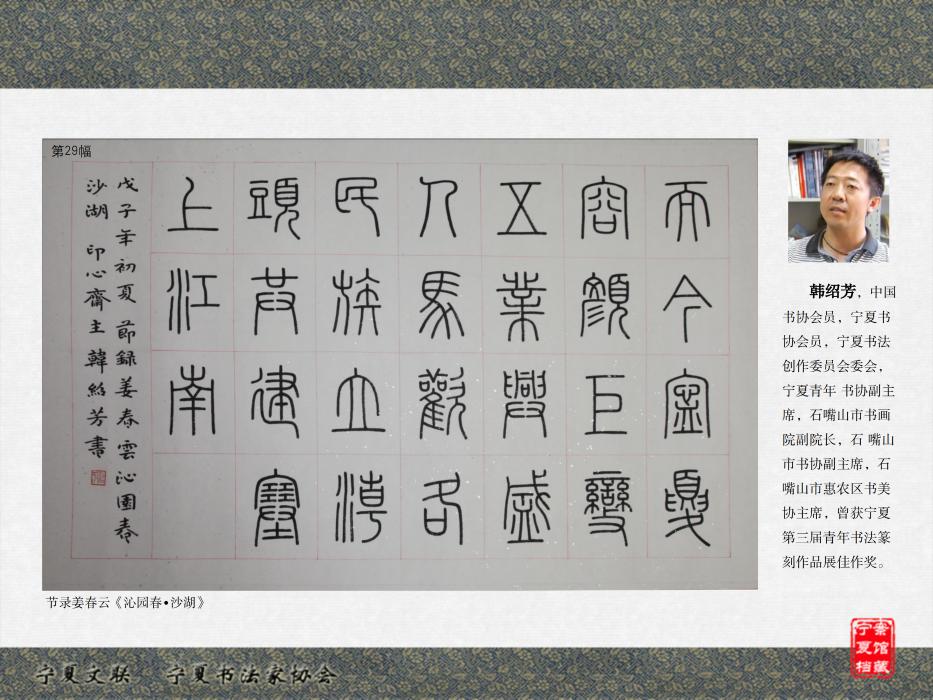 第29幅
而今寧夏
容顏巨變
五業興盛
人馬歡各
民族立潮
頭共建塞
上江南
戊子年初夏 節録姜春雲沁園春
沙湖 印心齋主韓紹芳書
节录姜春云《沁园春•沙湖》
韩绍芳，中国
书协会员，宁夏书
协会员，宁夏书法
创作委员会委会，
宁夏青年 书协副主
席，石嘴山市书画
院副院长，石 嘴山
市书协副主席，石
嘴山市惠农区书美
协主席，曾获宁夏
第三届青年书法篆
刻作品展佳作奖。
宁夏文联 宁夏书法家协会
宁夏档
案馆藏